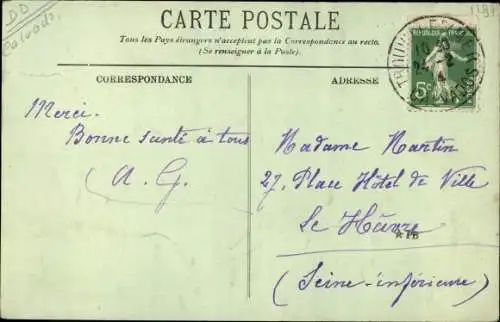 DD
Calvados
CARTE POSTALE
Tous les Pays étrangers n'acceptent pas la Correspondance au recto.
(Se renseigner à la Poste).
CORRESPONDANCE
ADRESSE
REPUBLIQUE FRANÇAISE
5c
Merci.
Bonne santé à tous
A. G.
Madame Martin
27, Place Hôtel de Ville
Le Hâvre
*PB
(Seine-inférieure)